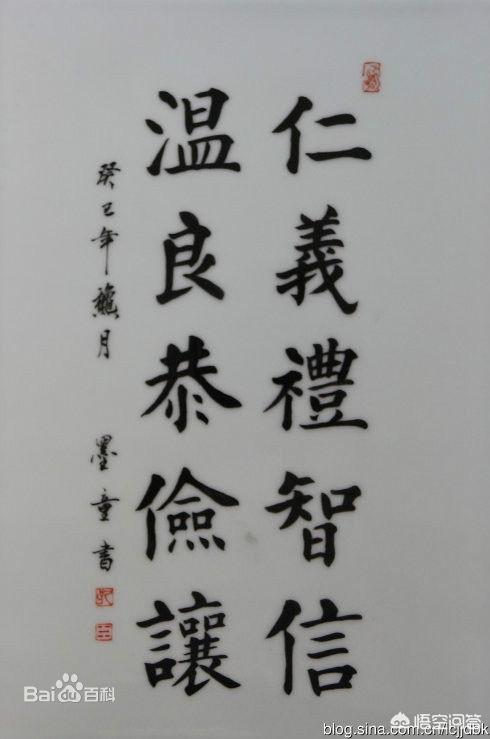 仁義禮智信
温良恭儉讓
癸巳年 龝月 墨童書
Bai百科
悟空问答
blog.sina.com.cn/cjjdbk